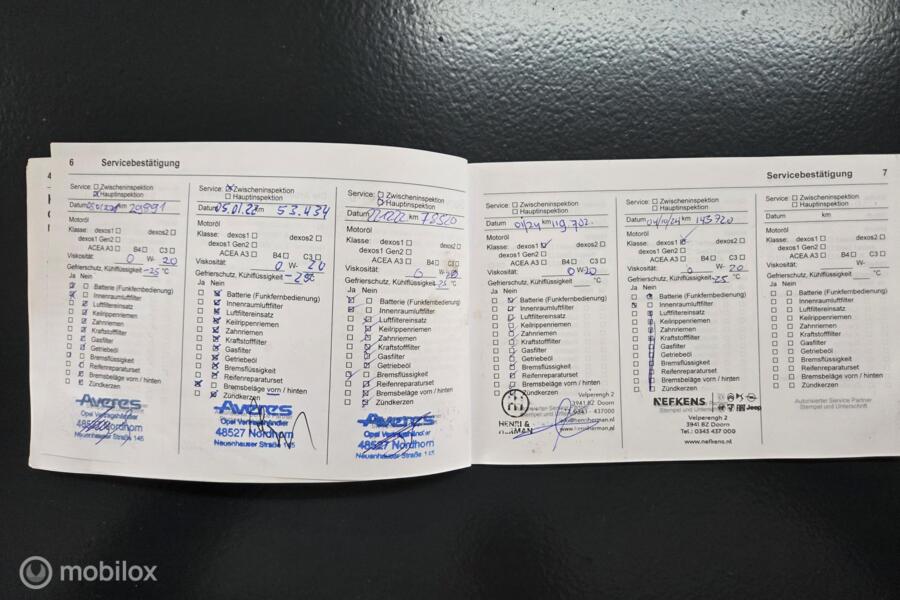 6 Servicebestätigung
Service: Zwischeninspektion
Hauptinspektion
Datum km 29991
Motoröl
Klasse: dexos1 dexos2
dexos1 Gen2
ACEA A3 B4 C3
Viskosität: 0 W- 20
Gefrierschutz, Kühlflüssigkeit -25 °C
Ja Nein
Batterie (Funkfernbedienung)
Innenraumluftfilter
Luftfiltereinsatz
Keilrippenriemen
Zahnriemen
Kraftstofffilter
Gasfilter
Getriebeöl
Bremsflüssigkeit
Reifenreparaturset
Bremsbeläge vorn / hinten
Zündkerzen
Averes
Opel Vertragshändler
48527 Nordhorn
Neuenhauser Straße 145
Service: Zwischeninspektion
Hauptinspektion
Datum 05.01.22 km 53.434
Motoröl
Klasse: dexos1 dexos2
dexos1 Gen2
ACEA A3 B4 C3
Viskosität: 0 W- 20
Gefrierschutz, Kühlflüssigkeit
Ja Nein
Batterie (Funkfernbedienung)
Innenraumluftfilter
Luftfiltereinsatz
Keilrippenriemen
Zahnriemen
Kraftstofffilter
Gasfilter
Getriebeöl
Bremsflüssigkeit
Reifenreparaturset
Bremsbeläge vorn / hinten
Zündkerzen
Averes
Opel Vertragshändler
48527 Nordhorn
Neuenhauser Straße 145
Service: Zwischeninspektion
Hauptinspektion
Datum km
Motoröl
Klasse: dexos1 dexos2
dexos1 Gen2
ACEA A3 B4 C3
Viskosität: 0 W-
Gefrierschutz, Kühlflüssigkeit -25 °C
Ja Nein
Batterie (Funkfernbedienung)
Innenraumluftfilter
Luftfiltereinsatz
Keilrippenriemen
Zahnriemen
Kraftstofffilter
Gasfilter
Getriebeöl
Bremsflüssigkeit
Reifenreparaturset
Bremsbeläge vorn / hinten
Zündkerzen
Averes
Opel Vertragshändler
48527 Nordhorn
Neuenhauser Straße 145
Servicebestätigung 7
Service: Zwischeninspektion
Hauptinspektion
Datum 01/24 km 119.702.
Motoröl
Klasse: dexos1 dexos2
dexos1 Gen2
ACEA A3 B4 C3
Viskosität: 0 W- 20
Gefrierschutz, Kühlflüssigkeit °C
Ja Nein
Batterie (Funkfernbedienung)
Innenraumluftfilter
Luftfiltereinsatz
Keilrippenriemen
Zahnriemen
Kraftstofffilter
Gasfilter
Getriebeöl
Bremsflüssigkeit
Reifenreparaturset
Bremsbeläge vorn / hinten
Zündkerzen
Velperengh 2
3941 BZ Doorn
0343 - 437000
HENRI &
HERMAN
Service: Zwischeninspektion
Hauptinspektion
Datum 04/10/24 km 143720
Motoröl
Klasse: dexos1 dexos2
dexos1 Gen2
ACEA A3 B4 C3
Viskosität: 0 W- 20
Gefrierschutz, Kühlflüssigkeit -25 °C
Ja Nein
Batterie (Funkfernbedienung)
Innenraumluftfilter
Luftfiltereinsatz
Keilrippenriemen
Zahnriemen
Kraftstofffilter
Gasfilter
Getriebeöl
Bremsflüssigkeit
Reifenreparaturset
Bremsbeläge vorn / hinten
Zündkerzen
NEFKENS Jeep
Stempel und Unterschrift
Velperengh 2
3941 BZ Doorn
Tel.: 0343 437 000
www.nefkens.nl
Service: Zwischeninspektion
Hauptinspektion
Datum km
Motoröl
Klasse: dexos1 dexos2
dexos1 Gen2
ACEA A3 B4 C3
Viskosität: W-
Gefrierschutz, Kühlflüssigkeit °C
Ja Nein
Batterie (Funkfernbedienung)
Innenraumluftfilter
Luftfiltereinsatz
Keilrippenriemen
Zahnriemen
Kraftstofffilter
Gasfilter
Getriebeöl
Bremsflüssigkeit
Reifenreparaturset
Bremsbeläge vorn / hinten
Zündkerzen
Autorisierter Service Partner
Stempel und Unterschrift
mobilox